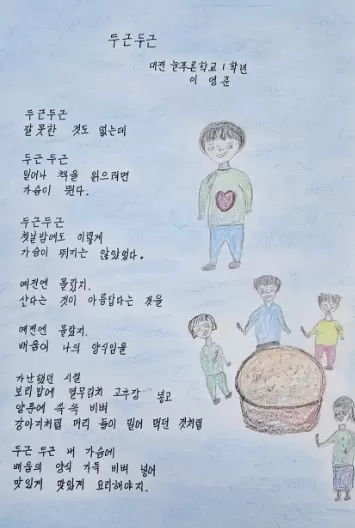 두근두근
대전 늘푸른학교 1학년
이영순
두근두근
잘못한 것도 없는데
두근두근
일어나 책을 읽으려면
가슴이 뛴다.
두근두근
첫날밤에도 이렇게
가슴이 뛰지는 않았었다.
예전엔 몰랐지.
산다는 것이 아름답다는 것을
예전엔 몰랐지.
배움이 나의 양식임을
가난했던 시절
보리밥에 열무김치 고추장 넣고
양푼에 쓱쓱 비벼
강아지처럼 머리 들이 밀어 먹던 것처럼
두근 두근 내 가슴에
배움의 양식 가득 비벼 넣어
맛있게 맛있게 요리해야지.